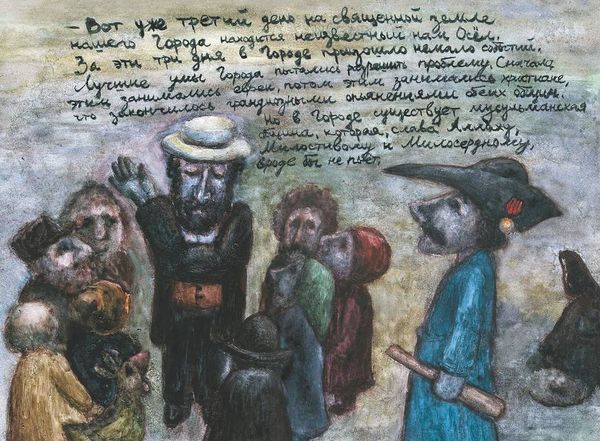 - Вот уже третий день на священной земле
нашего Города находится неизвестный нам Осёл.
За эти три дня в Городе произошло немало событий.
Лучшие умы Города пытались разрешить проблему. Сначала
этим занимались евреи, потом этим занимались христиане,
что закончилось грандиозными опьянениями обеих общин.
но в Городе существует мусульманская
община, которая, слава Аллаху,
Милостивому и Милосердному,
вроде бы не пьёт.